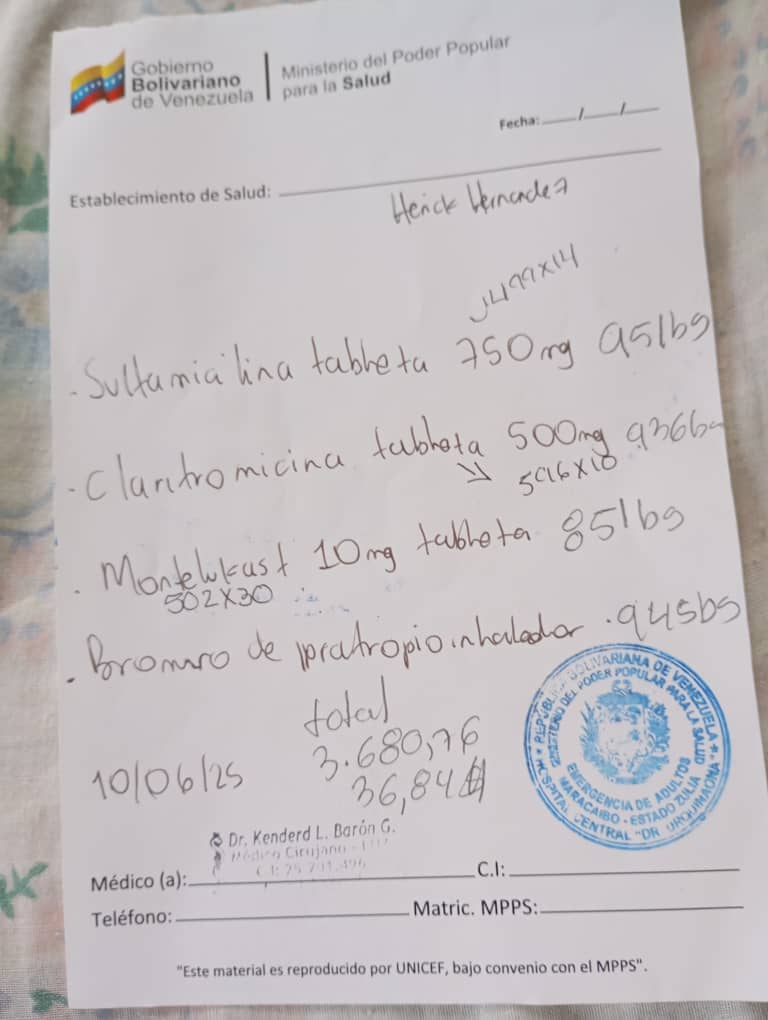 Gobierno
Bolivariano
de Venezuela
Ministerio del Poder Popular
para la Salud
Fecha: ____/____/____
Establecimiento de Salud:
Herick Hernandez
x14
. Sultamicilina tableta 750mg 951bs
. Claritromicina tableta 500mg 936bs
x10
. Montelukast 10mg tableta 851bs
502x30
. Bromuro de ipratropio inhalador . 945bs
total
3.680,76
36,84$
10/06/25
REPÚBLICA BOLIVARIANA DE VENEZUELA
MINISTERIO DEL PODER POPULAR PARA LA SALUD
EMERGENCIA DE ADULTOS
MARACAIBO - ESTADO ZULIA
HOSPITAL CENTRAL "DR. URQUINAONA"
Dr. Kenderd L. Barón G.
Médico Cirujano
Médico (a):
C.I:
Teléfono:
Matric. MPPS:
"Este material es reproducido por UNICEF, bajo convenio con el MPPS".